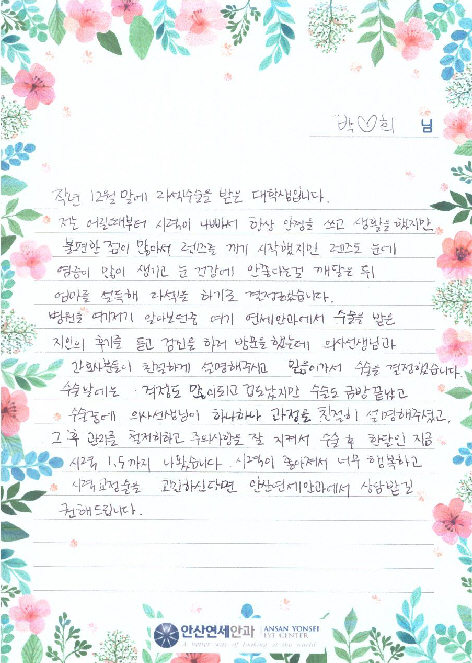 박♡희 님
작년 12월 말에 라섹수술을 받은 대학생입니다.
저는 어릴때부터 시력이 나빠서 항상 안경을 쓰고 생활을 했지만
불편한 점이 많아서 렌즈를 끼게 시작했지만 렌즈도 눈에
염증이 많이 생기고 눈 건강에 안좋다는걸 깨달은 뒤
엄마를 설득해 라섹을 하기로 결정했습니다.
병원을 여기저기 알아보던중 여기 연세안과에서 수술을 받은
지인의 후기를 듣고 검진을 하러 방문을 했는데 의사선생님과
간호사분들이 친절하게 설명해주셔 믿음이가서 수술을 결정했습니다.
수술날에는 걱정도 많이되고 겁도났지만 수술도 금방 끝났고
수술전에 의사선생님이 하나하나 과정을 친절히 설명해주셨고,
그 후 관리를 철저히하고 주의사항을 잘 지켜서 수술 후 한달인 지금
시력 1.5까지 나왔습니다. 시력이 좋아져서 너무 행복하고
시력교정술을 고민하신다면 안산연세안과에서 상담받길
권해드립니다.
안산연세안과 ANSAN YONSEI
EYE CENTER
A better way of looking at the world